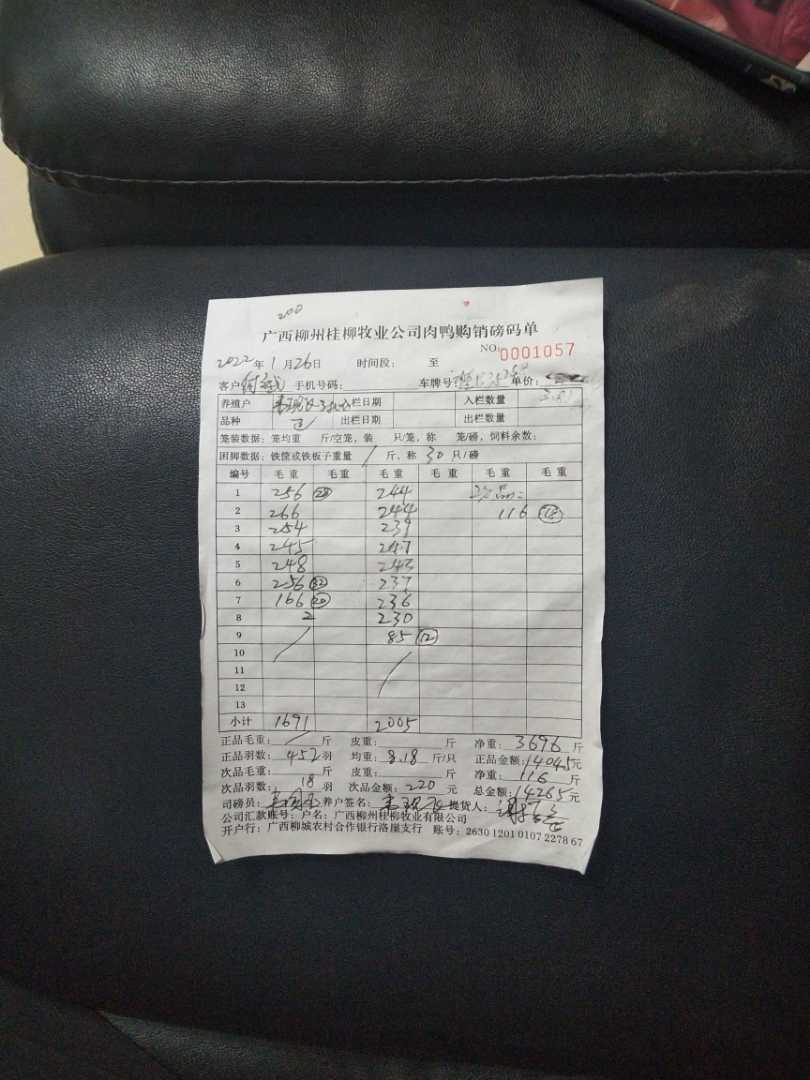 200
广西柳州桂柳牧业公司肉鸭购销磅码单
NO: 0001057
2022年1月26日 时间段: 至
客户 手机号码: 车牌号 单价:
养殖户 入栏日期 入栏数量
品种 出栏日期 出栏数量
笼装数据: 笼均重 斤/空笼, 装 只/笼, 称 笼/磅, 饲料余数:
困脚数据: 铁筐或铁板子重量 / 斤, 称30只/磅
编号 毛重 毛重 毛重 毛重 毛重 毛重
1 256 244 次品:
2 266 244 116 18
3 254 239
4 245 247
5 248 243
6 256 32 237
7 166 20 236
8 2 230
9 85 12
10
11
12
13
小计 1691 2005
正品毛重: / 斤 皮重: 斤 净重: 3696 斤
正品羽数: 452羽 均重: 8.18 斤/只 正品金额: 14045元
次品毛重: 斤 皮重: 斤 净重: 116 斤
次品羽数: 18 羽 次品金额: 220 元 总金额: 14265元
司磅员: 养户签名: 提货人:
公司汇款账号: 户名: 广西柳州桂柳牧业有限公司
开户行: 广西柳城农村合作银行洛崖支行 账号: 2630 1201 0107 2278 67